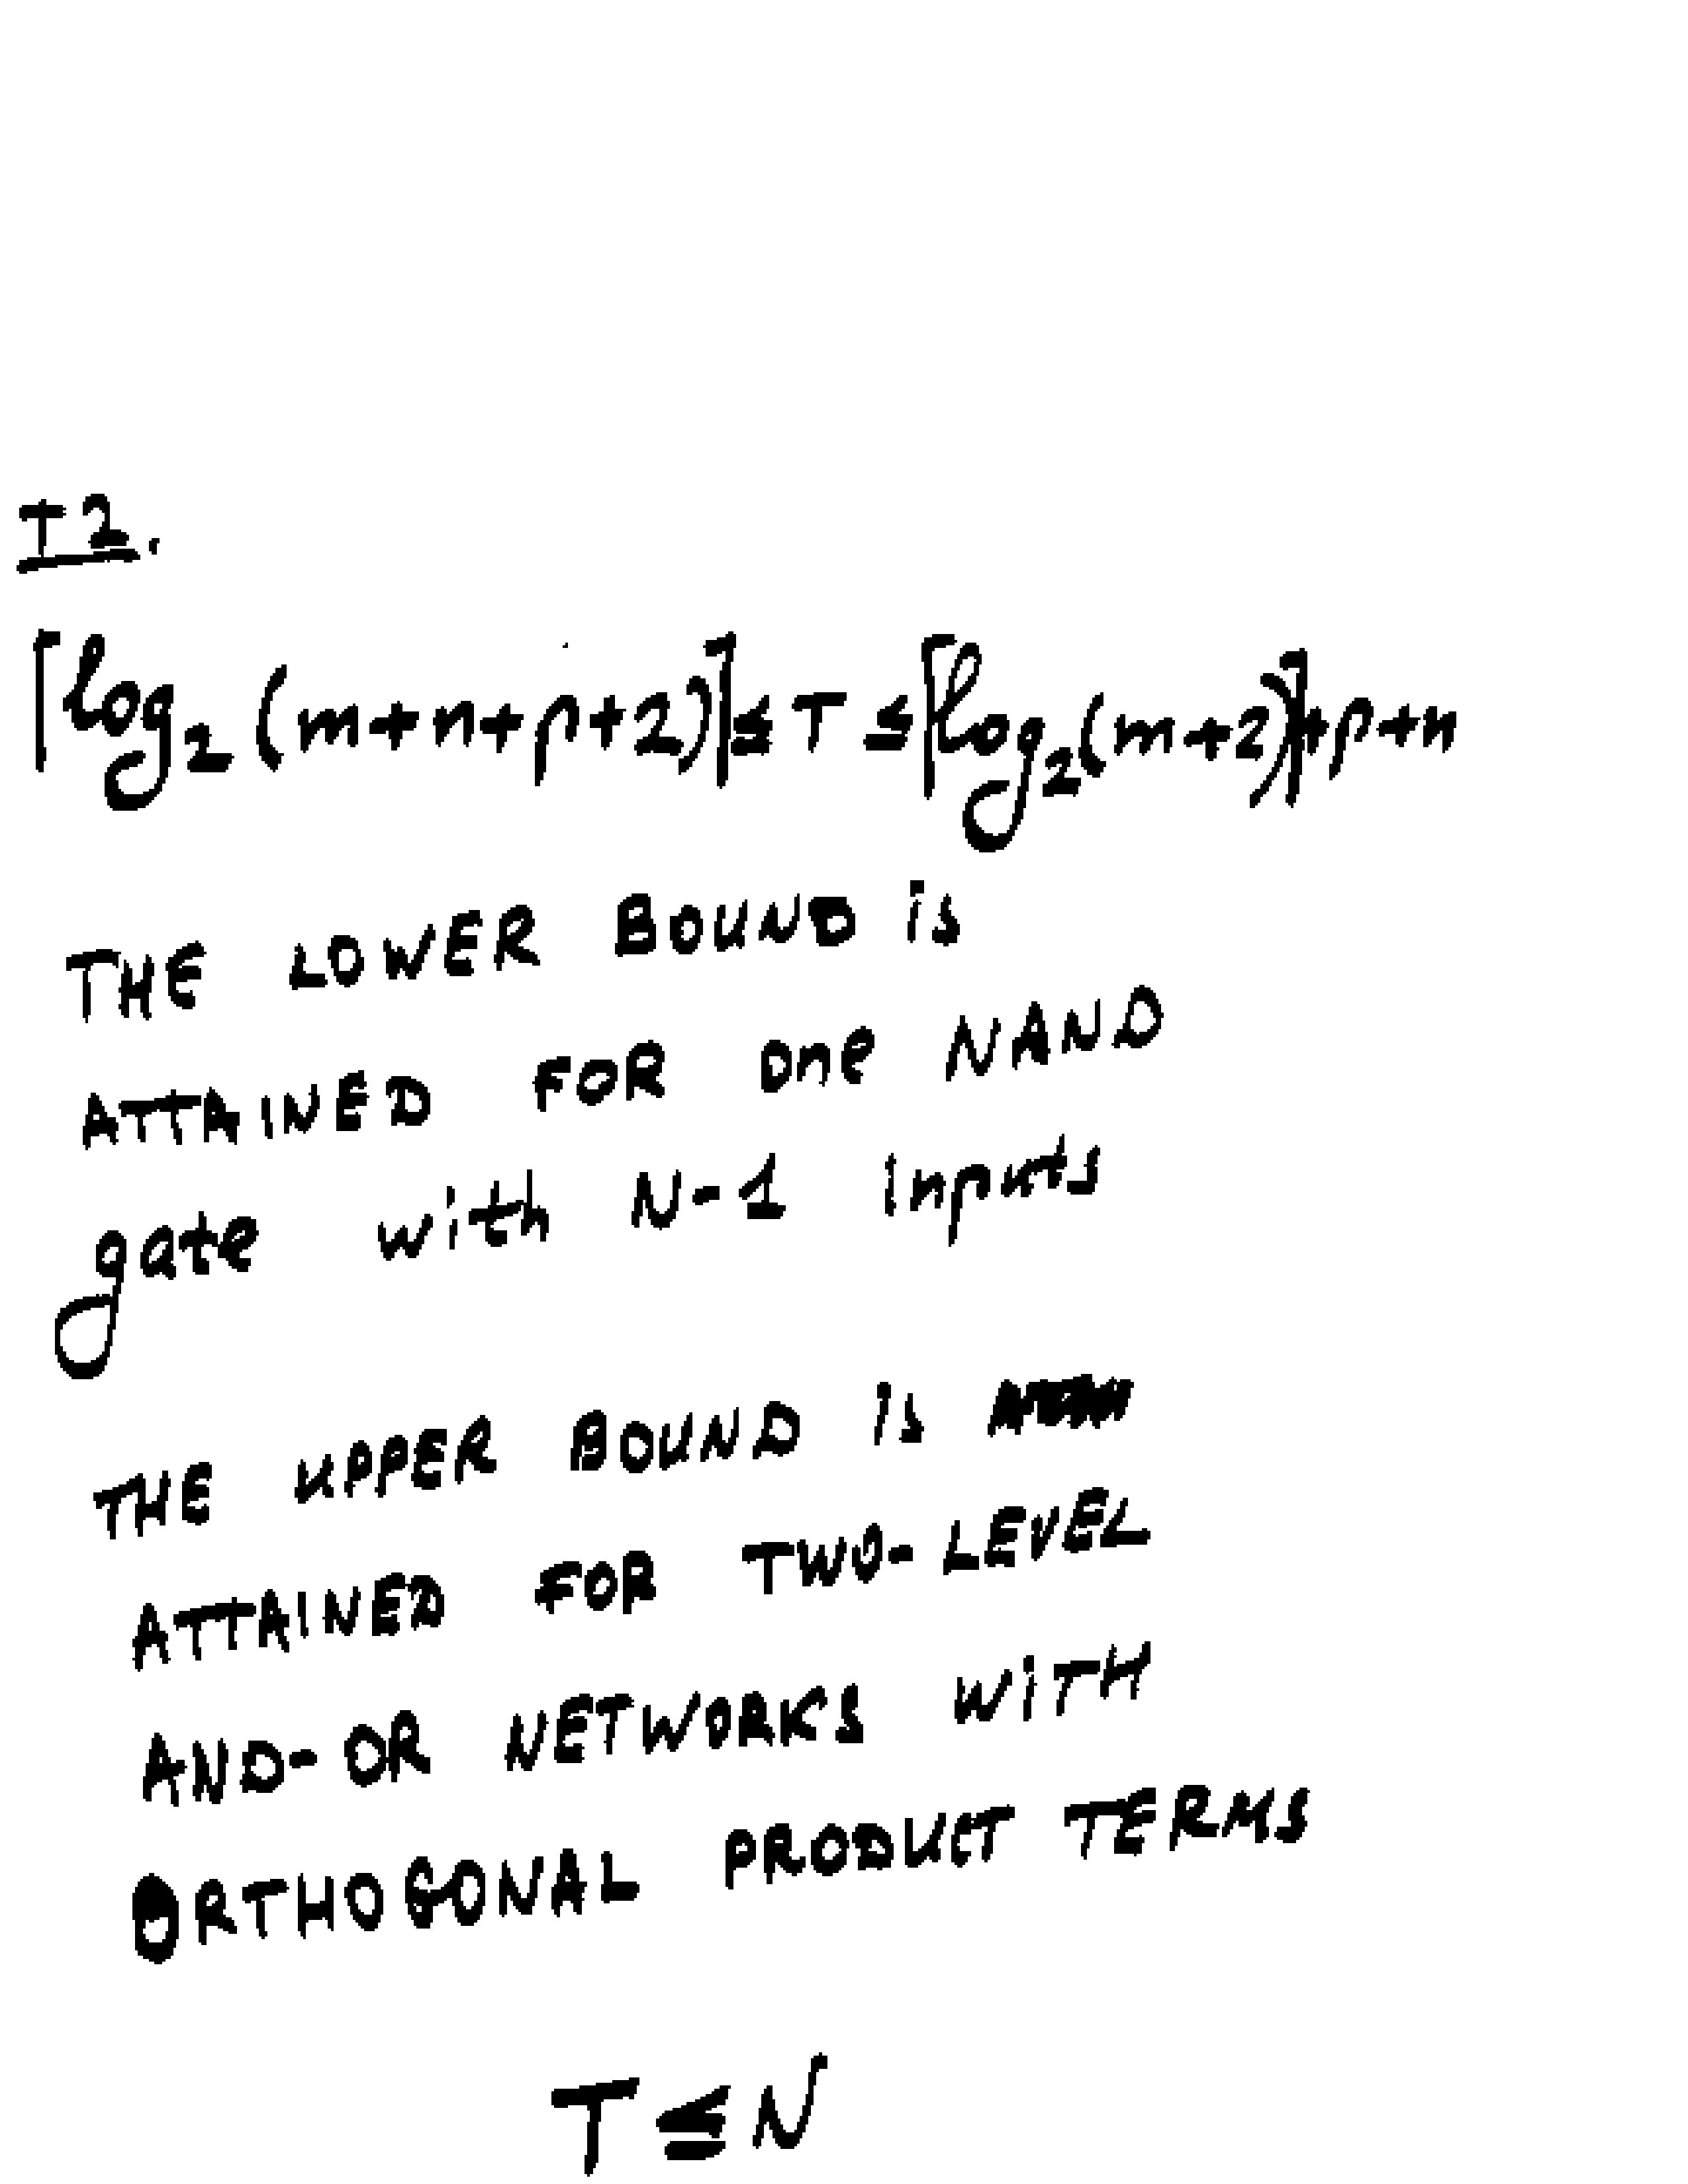 T2.
⌈log₂(m+n+p+2)⌉ ≤ T ≤ ⌈log₂(m+2)⌉+p+n
THE LOWER BOUND is
ATTAINED FOR One NAND
gate with N-1 inputs
THE UPPER BOUND is
ATTAINED FOR TWO-LEVEL
AND-OR NETWORKS WiTH
ORTHOGONAL PRODUCT TERMS
T ≤ N